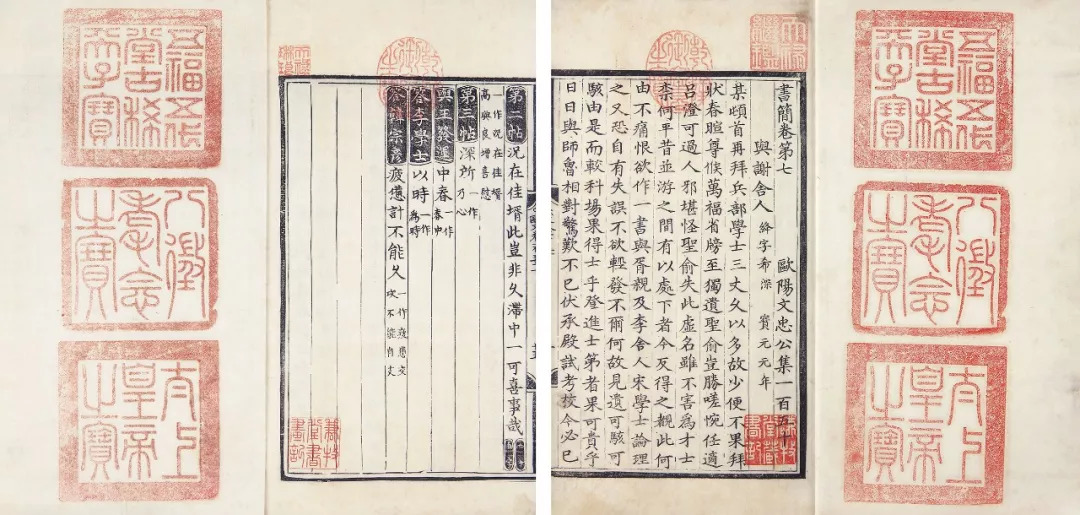 五福五代堂古稀天子寶
八徵耄念之寶
太上皇帝之寶
天祿繼鑑
書簡卷第七 歐陽文忠公集一百五十
與謝舍人 絳字希深 寶元元年
某頓首再拜兵部學士三丈久以多故少便不果拜
狀春暄尊候萬福省牓至獨遺聖俞豈勝嗟惋任適
呂澄可過人邪堪怪聖俞失此虛名雖不害為才士
柰何平昔並游之間有以處下者今反得之覩此何
由不痛恨欲作一書與胥親及李舍人宋學士論理
之又恐自有失誤不欲輕發不爾何故見遺可駭可
駭由是而較科場果得士乎登進士第者果可貴乎
日日與師魯相對驚歎不已伏承殿試考校今必已
謙牧堂藏書記
乾隆御覽之寶
第二帖 況在佳壻此豈非久滯中一可喜事哉
一作況在佳壻
高興良增喜慰
第三帖 深所 一作乃心
與王發運 中春 一作春中
答李學士 以時 一作為時
疲憊計不能久
乾隆御覽之寶
謙牧堂書畫記
五福五代堂古稀天子寶
八徵耄念之寶
太上皇帝之寶